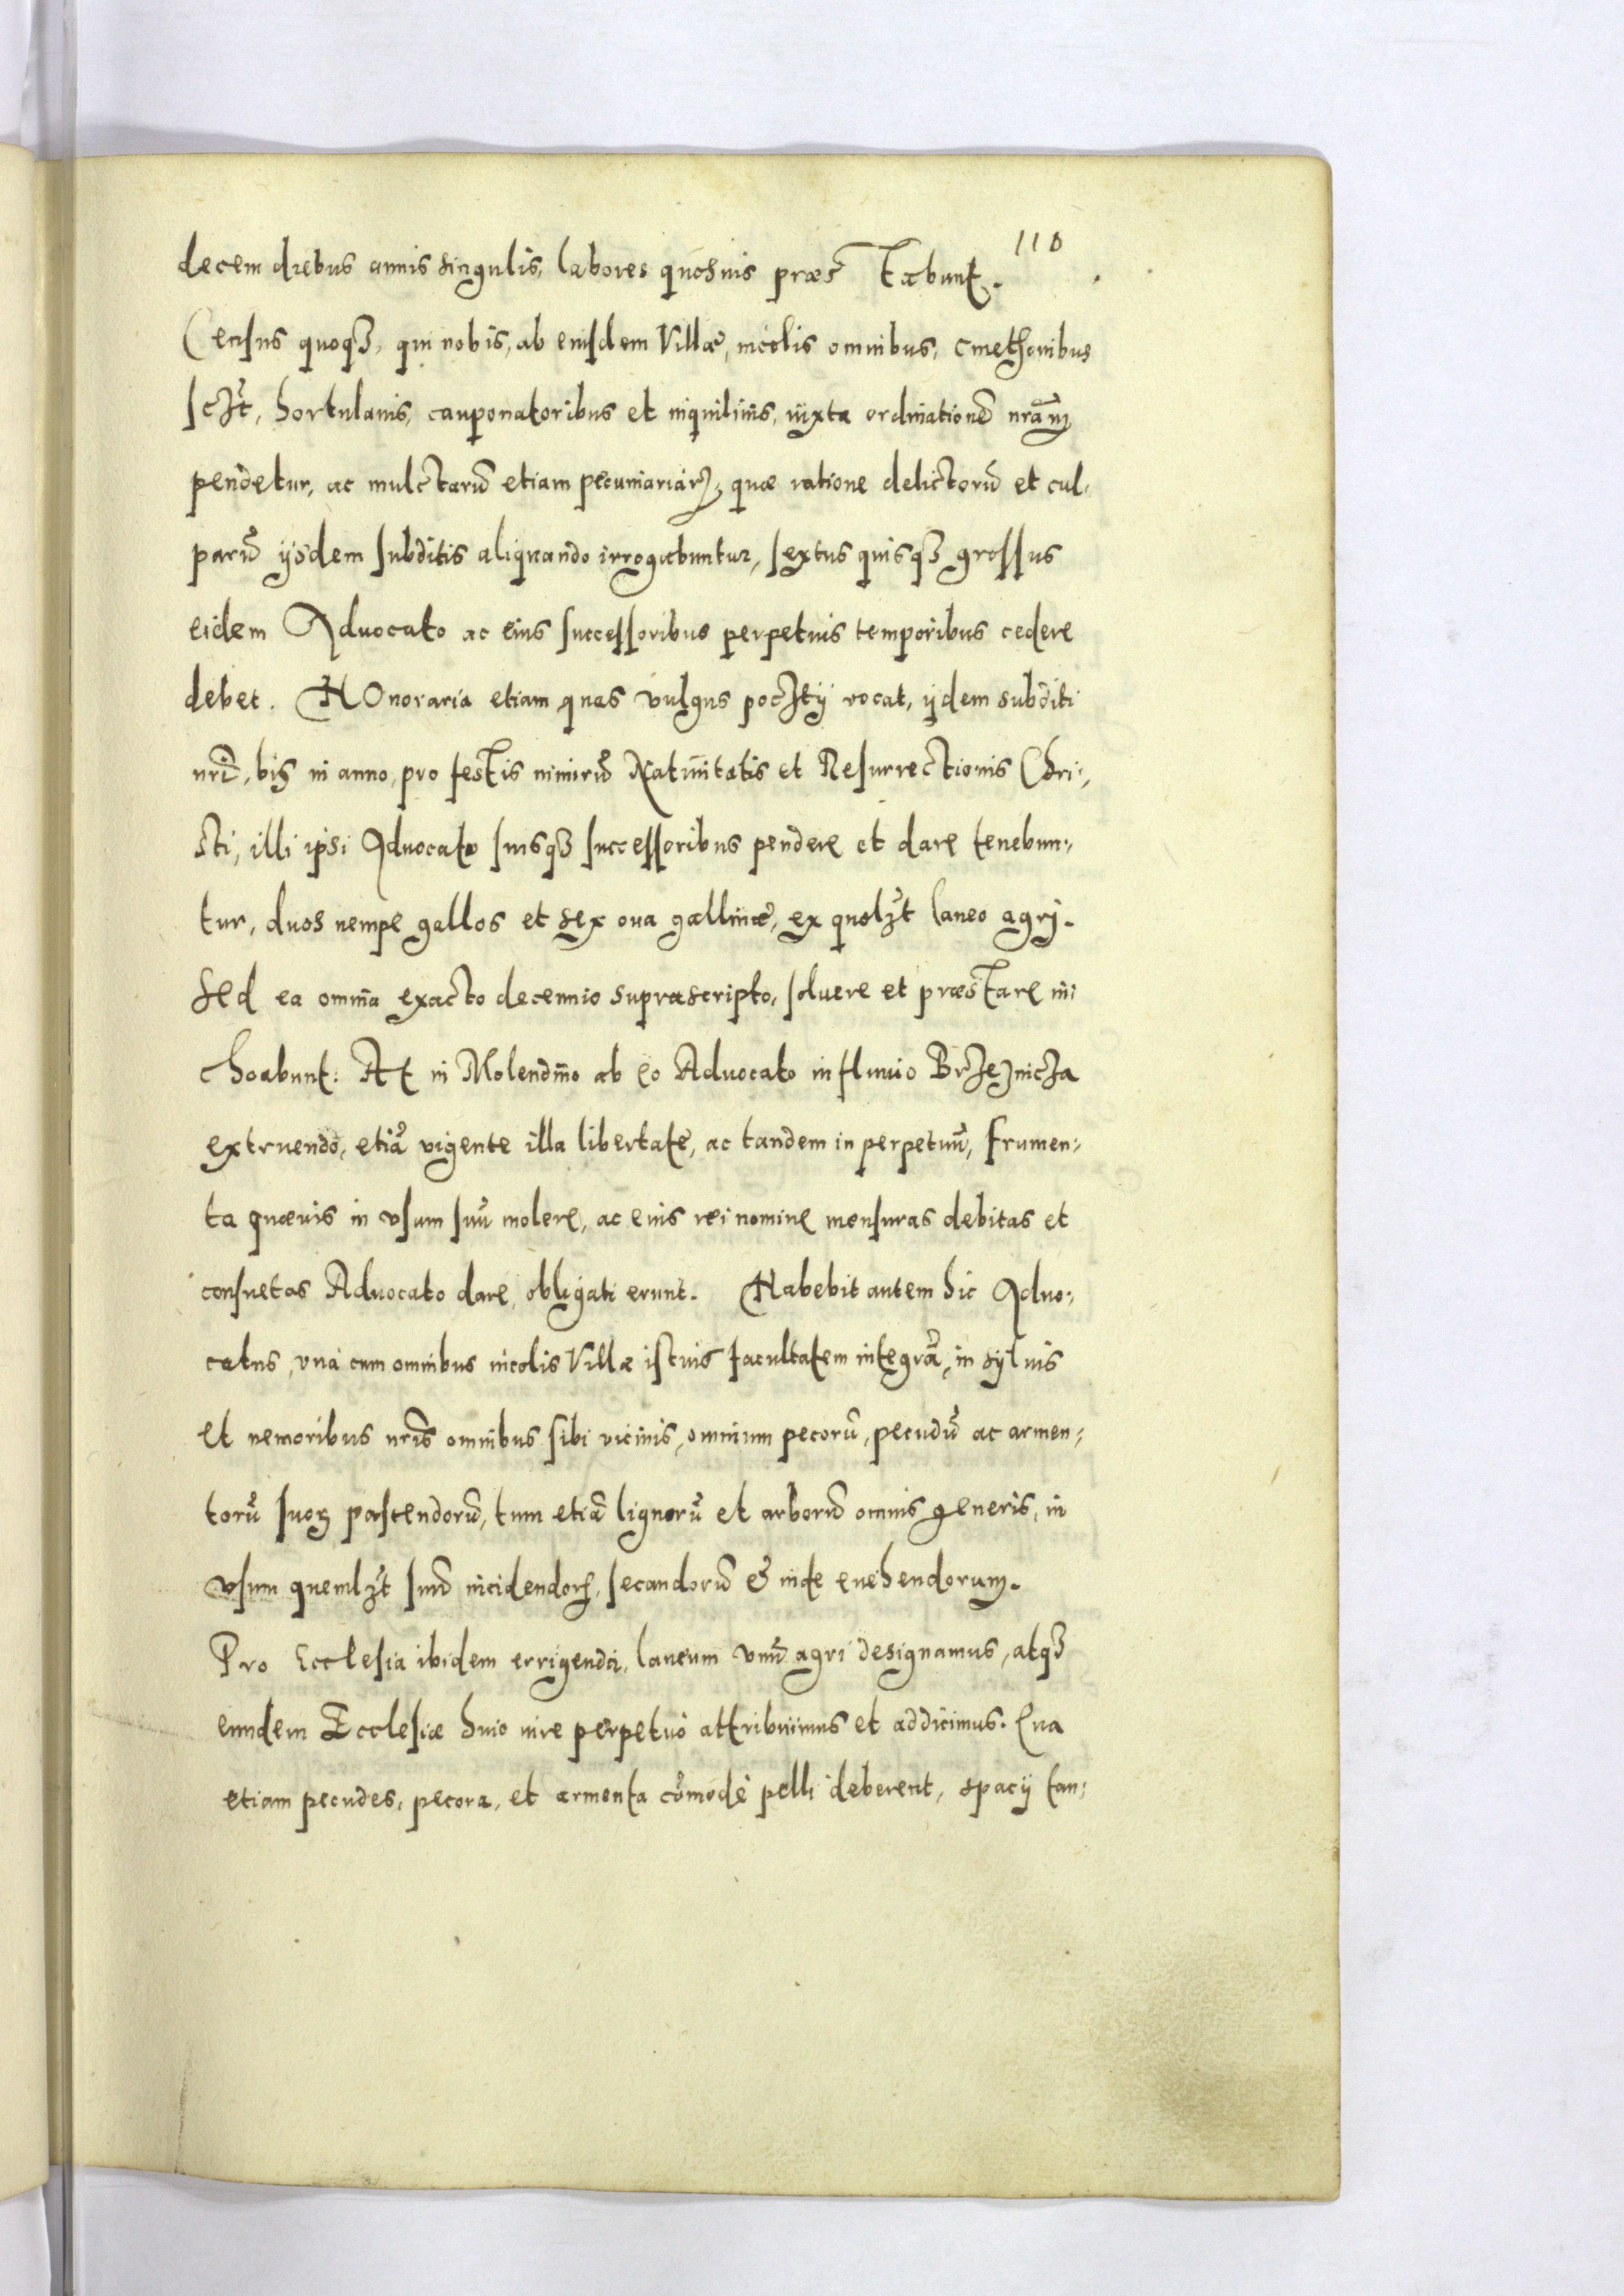 110
decem diebus annis singulis, labores quosuis præstabunt.
Census quoqȝ, qui nobis, ab eiusdem Villæ, incolis omnibus, cmethonibus
sczt̃, hortulanis, cauponatoribus et inquilinis, iuxta ordinationẽ nrãm
pendetur, ac mulctarũ etiam pecuniariarꝝ, quæ ratione delictorũ et cul-
parũ ijsdem subditis aliquando irrogabuntur, sextus quisqȝ grossus
eidem Aduocato ac eius successoribus perpetuis temporibus cedere
debet. HOnoraria etiam quas vulgus poczty vocat, ijdem subditi
nrĩ, bis in anno, pro festis nimirũ Natiuitatis et Resurrectionis Chri-
sti, illi ipsi Aduocato suisqȝ successoribus pendere et dare tenebun-
tur, duos nempe gallos et sex oua gallinæ, ex quolzt̃ laneo agri.
Sed ea omnia exacto decennio suprascripto, soluere et præstare in-
choabunt: At in Molendino ab eo Aduocato in fluuio Brzeznicza
extruendo, etiã vigente illa libertate, ac tandem in perpetuũ, frumen-
ta quæuis in vsum suũ molere, ac eius rei nomine mensuras debitas et
consuetas Aduocato dare, obligati erunt. Habebit autem hic Aduo-
catus, vnà cum omnibus incolis Villæ istius facultatem integrã, in syluis
et nemoribus nrĩs omnibus sibi vicinis, omnium pecorũ, pecudũ ac armen-
torũ suoꝝ pascendorũ, tum etiã lignorũ et arborũ omnis generis, in
vsum quemlzt̃ suũ incidendoꝝ, secandorũ & inde euehendorum.
Pro Ecclesia ibidem errigenda, laneum vnũ agri designamus, atqȝ
eundem Ecclesiæ huic iure perpetuò attribuimus et addicimus. Qua
etiam pecudes, pecora, et armenta cõmodè pelli deberent, spacij tan-